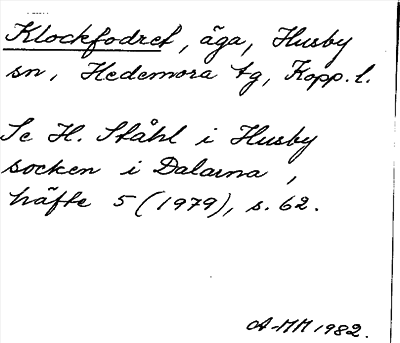 Klockfodret, äga, Husby
sn, Hedemora tg, Kopp. l.
Se H. Ståhl i Husby
socken i Dalarna,
häfte 5 (1979), s. 62.
A-MM 1982.